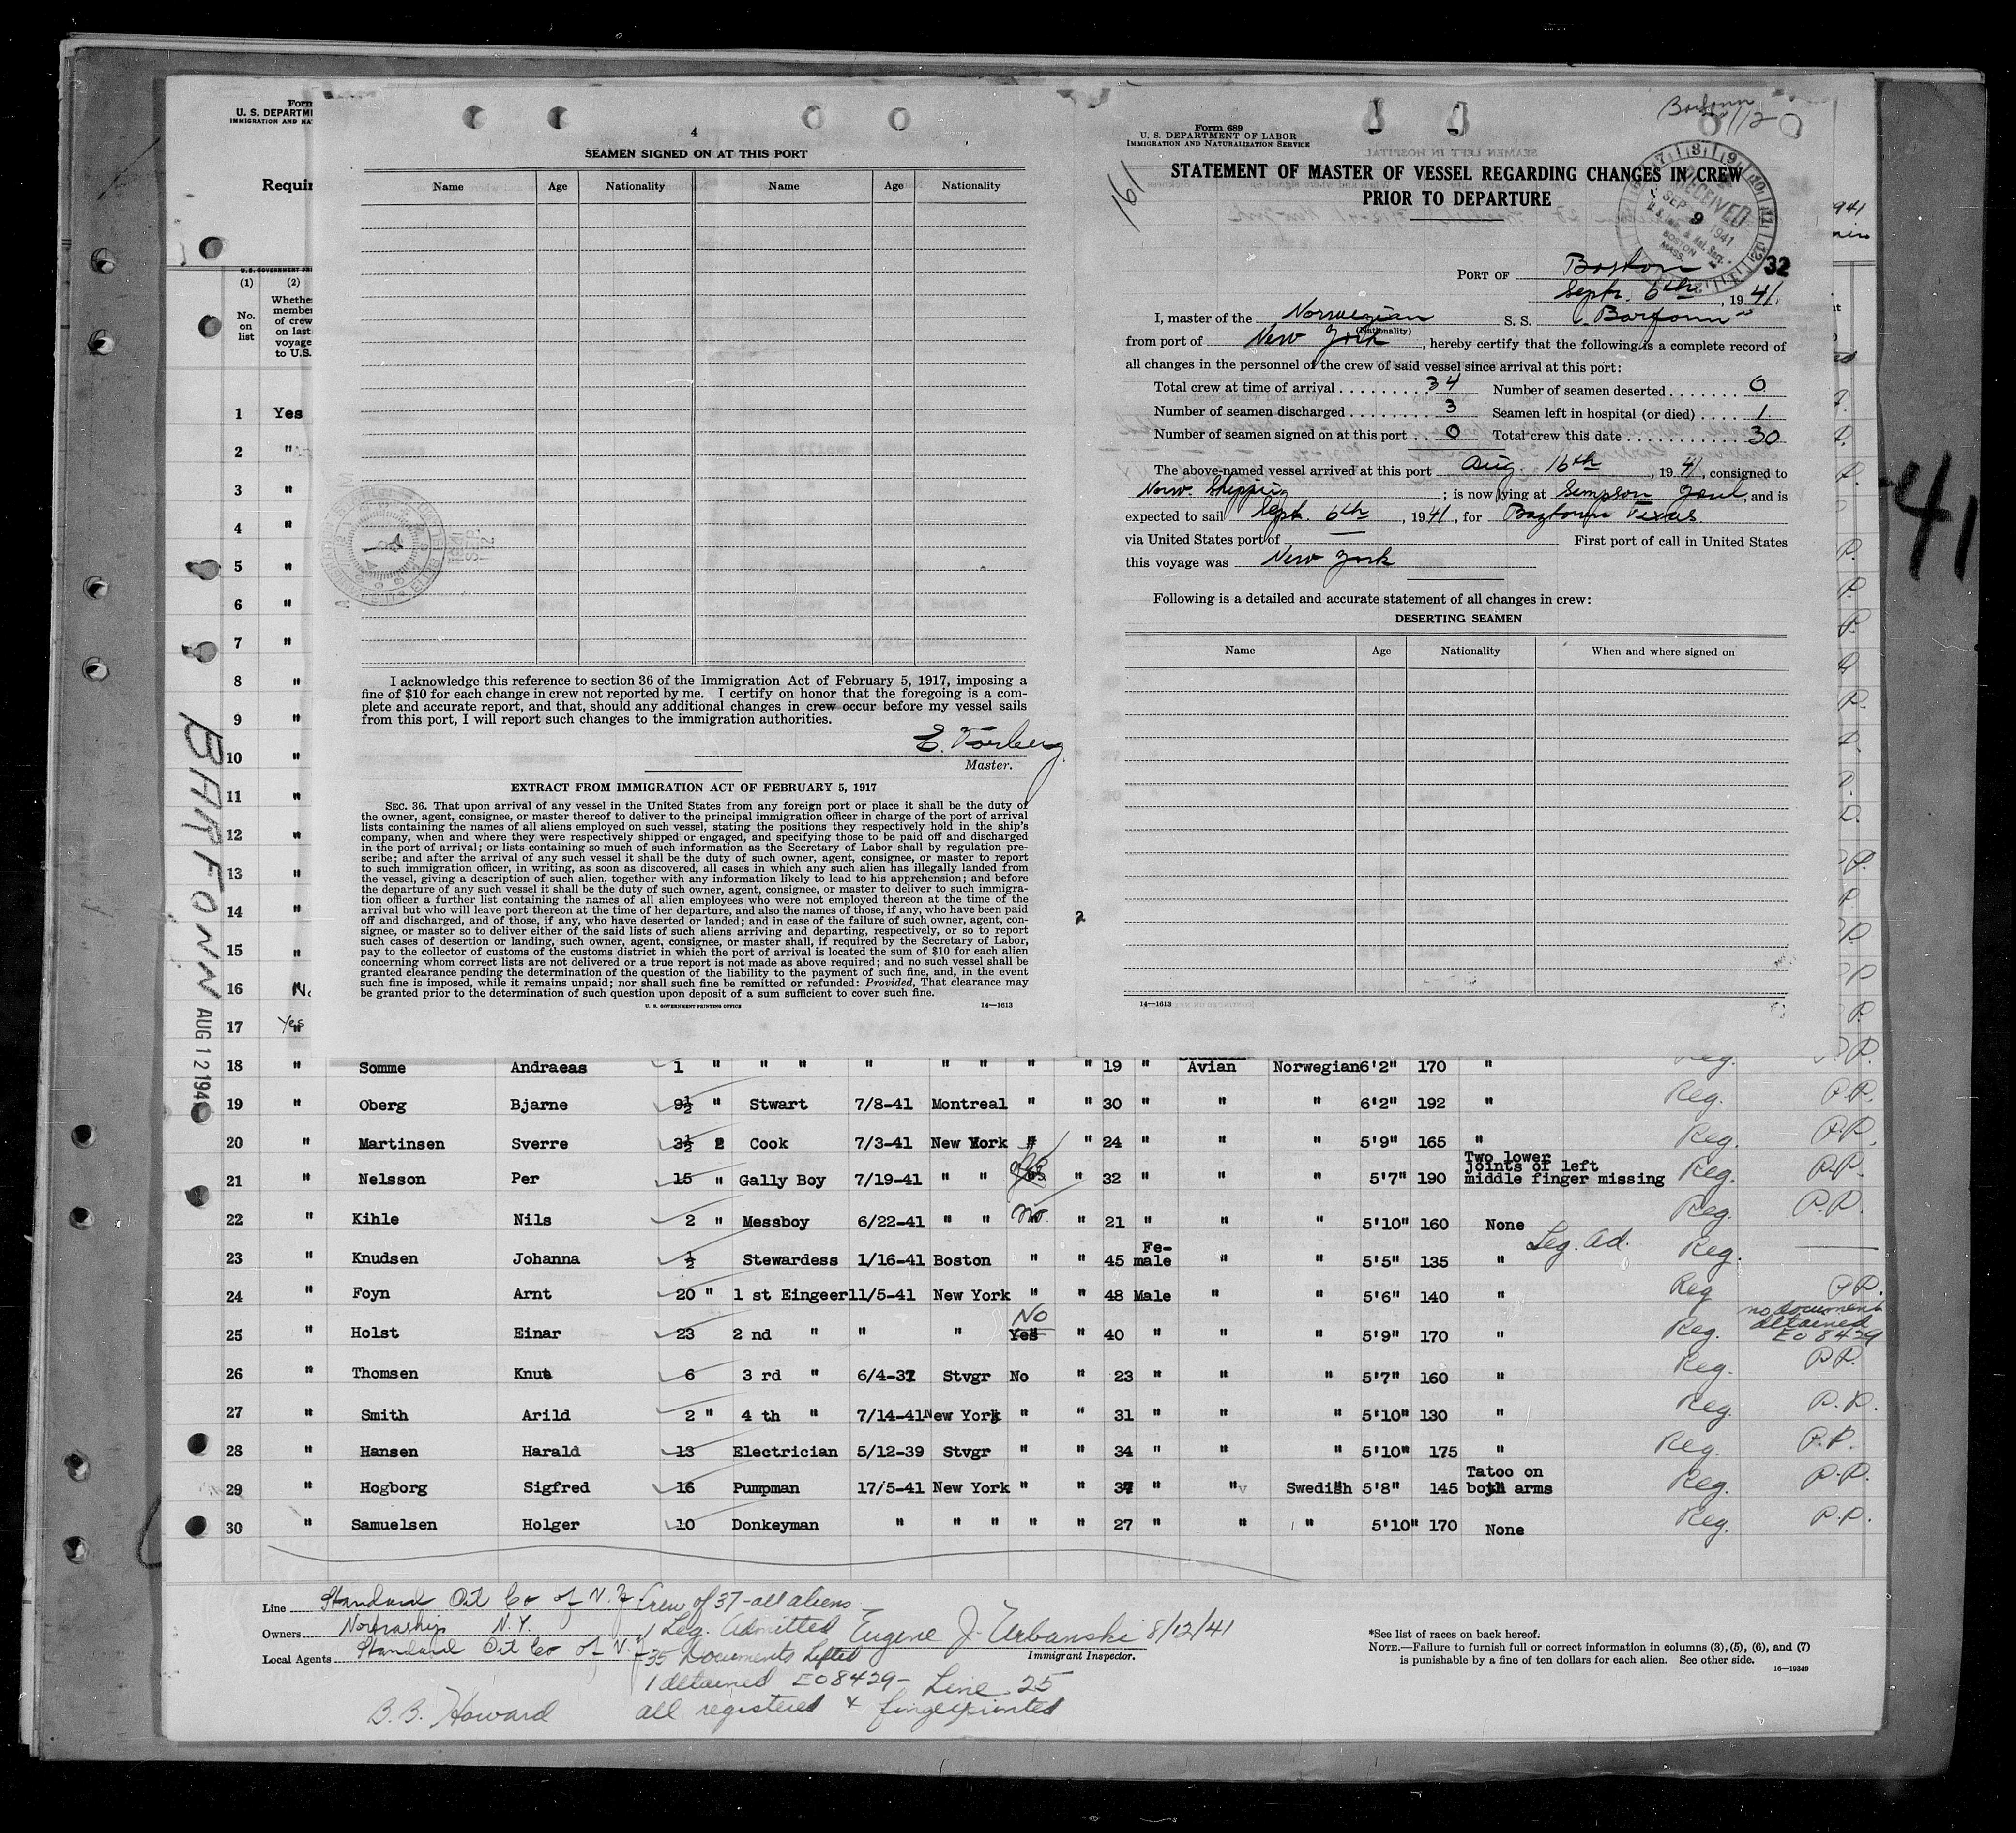 Form
U. S. DEPARTM
IMMIGRATION AND NA
Requir
U.S. GOVERNMENT PRI
(1) (2)
No. on list
Whethe
member
of crew
on last
voyage
to U.S.
1 Yes
2 "
3 "
4 "
5 "
6 "
7 "
8 "
9 "
10 "
11 "
12 "
13 "
14 "
15 "
16 No
17 Yes "
BARFONN
AUG 12 194
4
SEAMEN SIGNED ON AT THIS PORT
Name Age Nationality Name Age Nationality
I acknowledge this reference to section 36 of the Immigration Act of February 5, 1917, imposing a
fine of $10 for each change in crew not reported by me. I certify on honor that the foregoing is a com-
plete and accurate report, and that, should any additional changes in crew occur before my vessel sails
from this port, I will report such changes to the immigration authorities.
E. Torberg
Master.
EXTRACT FROM IMMIGRATION ACT OF FEBRUARY 5, 1917
SEC. 36. That upon arrival of any vessel in the United States from any foreign port or place it shall be the duty of
the owner, agent, consignee, or master thereof to deliver to the principal immigration officer in charge of the port of arrival
lists containing the names of all aliens employed on such vessel, stating the positions they respectively hold in the ship's
company, when and where they were respectively shipped or engaged, and specifying those to be paid off and discharged
in the port of arrival; or lists containing so much of such information as the Secretary of Labor shall by regulation pre-
scribe; and after the arrival of any such vessel it shall be the duty of such owner, agent, consignee, or master to report
to such immigration officer, in writing, as soon as discovered, all cases in which any such alien has illegally landed from
the vessel, giving a description of such alien, together with any information likely to lead to his apprehension; and before
the departure of any such vessel it shall be the duty of such owner, agent, consignee, or master to deliver to such immigra-
tion officer a further list containing the names of all alien employees who were not employed thereon at the time of the
arrival but who will leave port thereon at the time of her departure, and also the names of those, if any, who have been paid
off and discharged, and of those, if any, who have deserted or landed; and in case of the failure of such owner, agent, con-
signee, or master so to deliver either of the said lists of such aliens arriving and departing, respectively, or so to report
such cases of desertion or landing, such owner, agent, consignee, or master shall, if required by the Secretary of Labor,
pay to the collector of customs of the customs district in which the port of arrival is located the sum of $10 for each alien
concerning whom correct lists are not delivered or a true report is not made as above required; and no such vessel shall be
granted clearance pending the determination of the question of the liability to the payment of such fine, and, in the event
such fine is imposed, while it remains unpaid; nor shall such fine be remitted or refunded: Provided, That clearance may
be granted prior to the determination of such question upon deposit of a sum sufficient to cover such fine.
U. S. GOVERNMENT PRINTING OFFICE 14—1613
Form 689
U. S. DEPARTMENT OF LABOR
IMMIGRATION AND NATURALIZATION SERVICE
161
STATEMENT OF MASTER OF VESSEL REGARDING CHANGES IN CREW
PRIOR TO DEPARTURE
RECEIVED
SEP 9 1941
BOSTON
MASS.
32
PORT OF Boston
Septr. 6th, 1941.
I, master of the Norwegian S. S. "Barfonn"
(Nationality)
from port of New York, hereby certify that the following is a complete record of
all changes in the personnel of the crew of said vessel since arrival at this port:
Total crew at time of arrival 34 Number of seamen deserted 0
Number of seamen discharged 3 Seamen left in hospital (or died) 1
Number of seamen signed on at this port 0 Total crew this date 30
The above-named vessel arrived at this port Aug. 16th, 1941, consigned to
Norw. Shipping; is now lying at Simpson, and is
expected to sail Septr. 6th, 1941, for Baytown Texas
via United States port of First port of call in United States
this voyage was New York
Following is a detailed and accurate statement of all changes in crew:
DESERTING SEAMEN
Name Age Nationality When and where signed on
14—1613
41
18 " Somme Andraeas 1 " " " " " " " " 19 " Avian Norwegian 6'2" 170 " Reg. P.P.
19 " Oberg Bjarne 9½ " Stwart 7/8-41 Montreal " " 30 " " " 6'2" 192 " Reg. P.P.
20 " Martinsen Sverre 3½ " Cook 7/3-41 New York " " 24 " " " 5'9" 165 " Reg. P.P.
21 " Nelsson Per 15 " Gally Boy 7/19-41 " " " 32 " " " 5'7" 190 Two lower joints of left middle finger missing Reg. P.P.
22 " Kihle Nils 2 " Messboy 6/22-41 " " No. " 21 " " " 5'10" 160 None Reg. P.P.
23 " Knudsen Johanna ½ Stewardess 1/16-41 Boston " " 45 Fe-male " " 5'5" 135 " Leg. Ad. Reg.
24 " Foyn Arnt 20 " 1 st Eingeer 11/5-41 New York " " 48 Male " " 5'6" 140 " Reg P.P.
25 " Holst Einar 23 2 nd " " " No Yes " 40 " " " 5'9" 170 " Reg. no document detained EO 8429
26 " Thomsen Knut 6 3 rd " 6/4-37 Stvgr No " 23 " " " 5'7" 160 " Reg. P.P.
27 " Smith Arild 2 " 4 th " 7/14-41 New York " " 31 " " " 5'10" 130 " Reg. P.P.
28 " Hansen Harald 13 Electrician 5/12-39 Stvgr " " 34 " " " 5'10" 175 " Reg. P.P.
29 " Hogborg Sigfred 16 Pumpman 17/5-41 New York " " 37 " " Swedish 5'8" 145 Tatoo on both arms Reg. P.P.
30 " Samuelsen Holger 10 Donkeyman " " " " " 27 " " " 5'10" 170 None Reg. P.P.
Line Standard Oil Co of N.J. Crew of 37-all aliens
Owners Nortraship N.Y. 1 Leg. Admitted Eugene J. Urbanski 8/12/41
Local Agents Standard Oil Co of N.J. 35 Documents Lifted Immigrant Inspector.
1 detained EO 8429 - Line 25
B.B. Howard all registered & fingerprinted
*See list of races on back hereof.
NOTE.—Failure to furnish full or correct information in columns (3), (5), (6), and (7)
is punishable by a fine of ten dollars for each alien. See other side.
16—19349